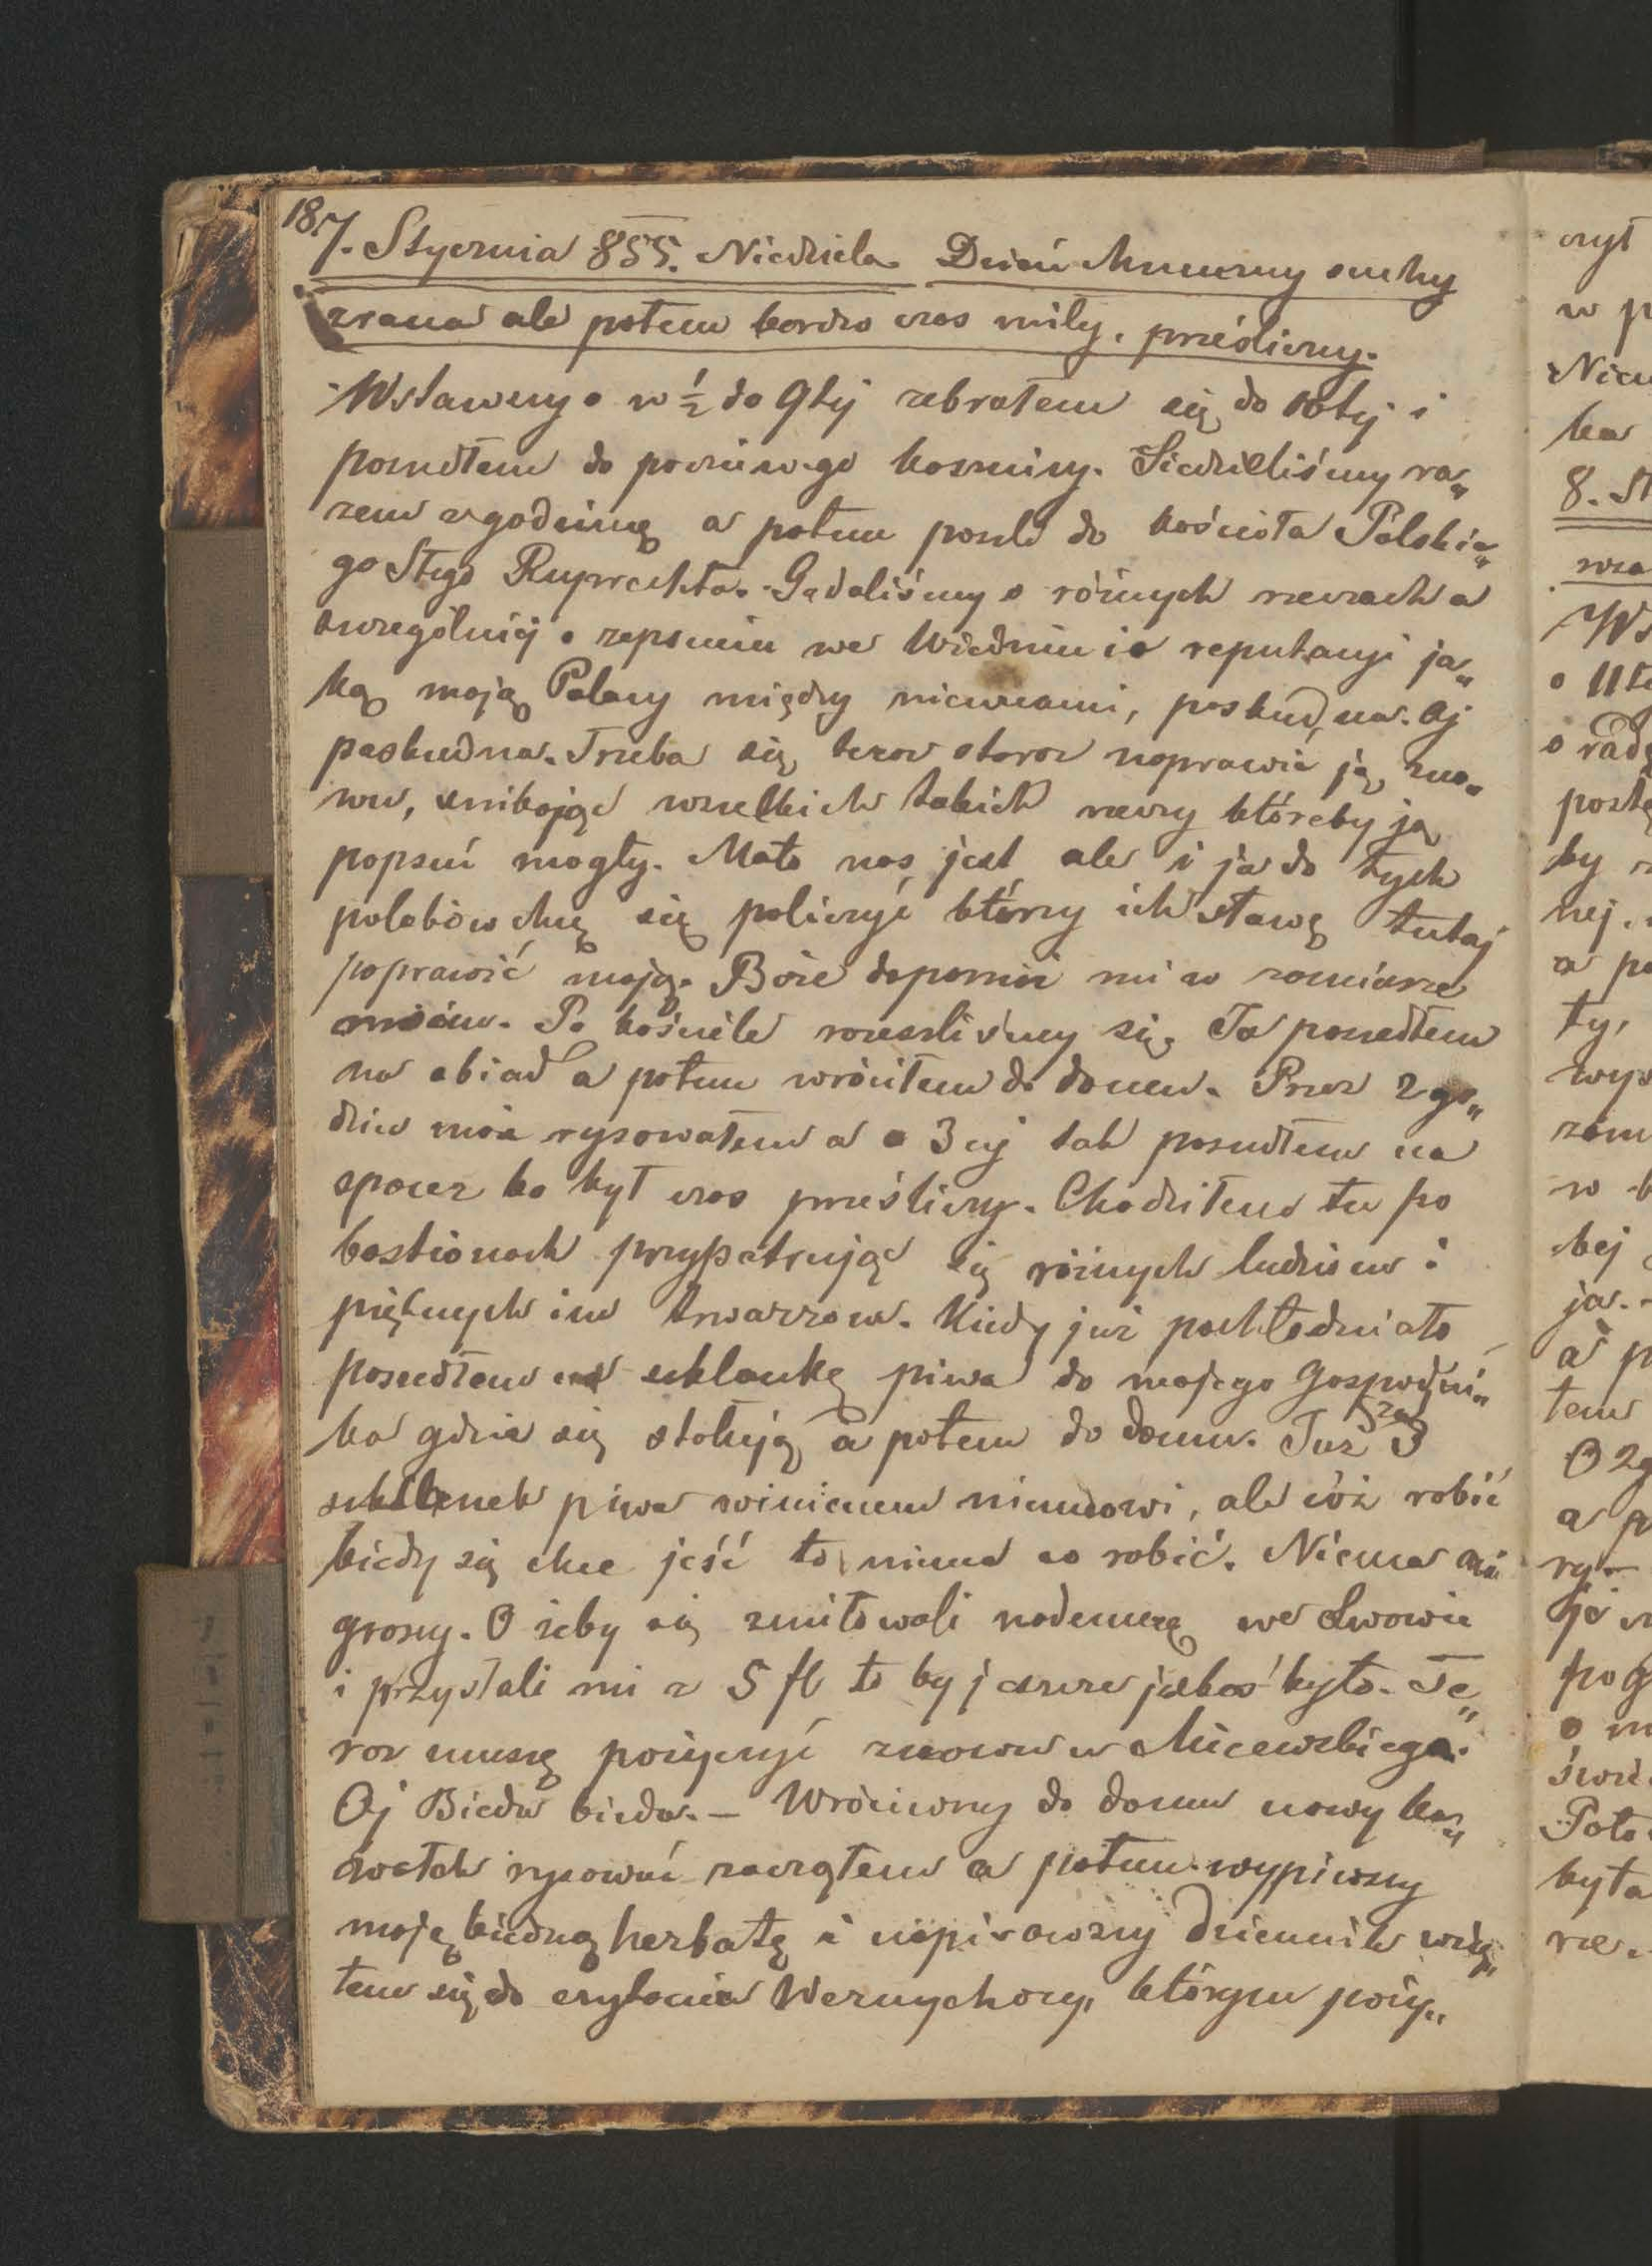 187.
7. Stycznia 855. Niedziela. Dzień chmurny suchy
zrana ale potem bardzo czas miły, prześliczny.
Wstawszy o w ½ do 9tej zebrałem się do 10tej i
poszedłem do poczciwego Kosminy. Siedzieliśmy ra„
zem z godzinę a potem poszli do kościoła Polskie„
go Stego Ruprechta. Gadaliśmy o różnych rzeczach a
szczególniej o zepsuciu we Wiedniu i o reputacyi ja„
ką mają Polacy między niemcami, paskudna. Oj
paskudna. Trzeba się teraz starać naprawić ją zno„
wu, unikając wszelkich takich rzeczy któreby ją
popsuć mogły. Mało nas jest ale i ja do tych
polaków chcę się policzyć którzy ich sławę tutaj
poprawić mają. Boże dopomóż mi w zamiarze
moim. Po kościele rozeszliśmy się. Ja poszedłem
na obiad a potem wróciłem do domu. Przez 2 go„
dzin moża rysowałem a o 3ciej tak poszedłem na
spacer bo był czas prześliczny. Chodziłem tu po
bastionach przypatrując się różnych ludziom i
pięknych im twarzom. Kiedy już pochłodniało
poszedłem na szklankę piwa do mojego Gospodni„
ka gdzie się stołuję a potem do domu. Już za 3
szklenek piwa winienem niemcowi, ale cóż robić
kiedy się chce jeść to nima co robić. Niema ani
groszy. O żeby się zmiłowali nademnę we Lwowie
i przysłali mi z 5 fl to by jeszcze jakoś było. Te„
raz muszę pożyczyć znowu u Micewskiego.
Oj Bieda bieda. – Wróciwszy do domu nowy ka„
wałek rysować zacząłem a potem wypiwszy
moję biedną herbatę i napisawszy dziennik wzią„
łem się do czytania Wernychory, którym poży„
czył
w p
Niem
ka
8. St
wsa
Ws
o 11te
o radę
postę
by
nej.
a po
ty,
wyp
zam
w
kej
ja.
a p
tem
O 2g
a p
ry
je
pog
o m
świe
Poto
była
rze